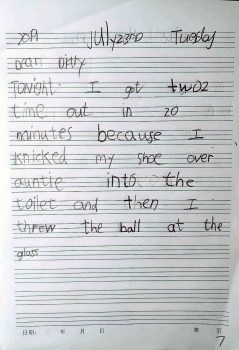 2019 JUly23rD Tuesday
Dear Dirty
Tonight I got two2
time out in 20
minutes because I
knicked my shoe over
auntie into the
toilet and then I
threw the ball at the
glass
日期: 年 月 日
7